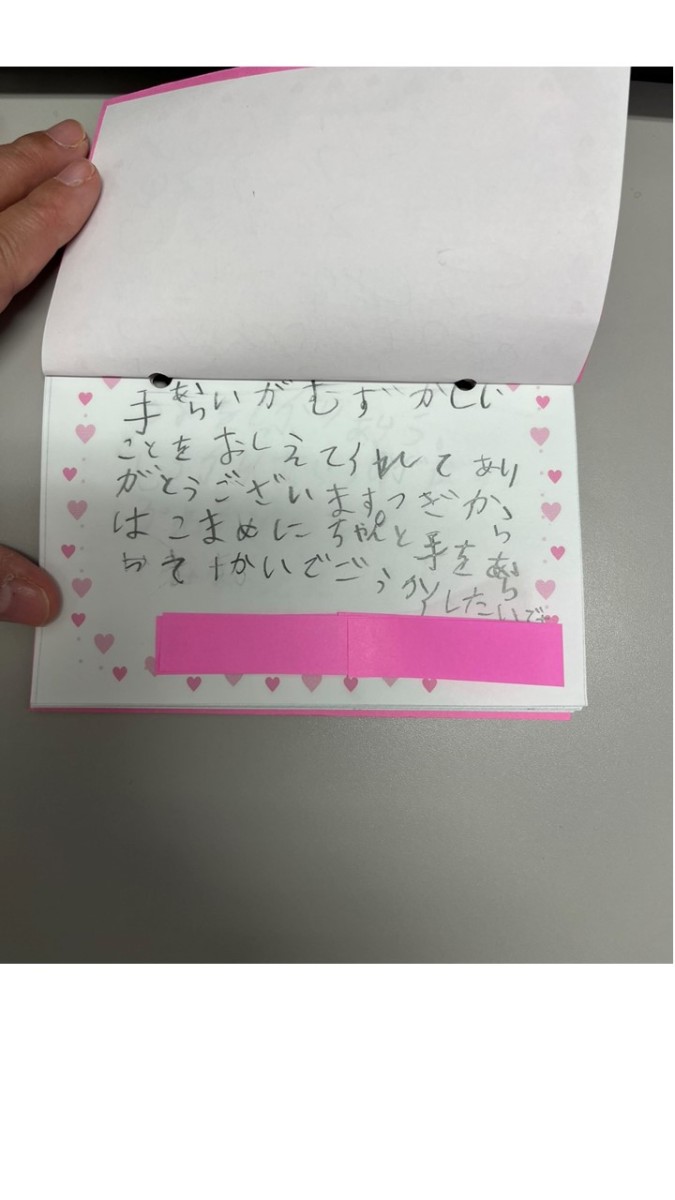 手あらいがむずかしい
ことをおしえてくれてあり
がとうございます。つぎから
はこまめにちゃんと手をあら
かいでごうかくしたいです